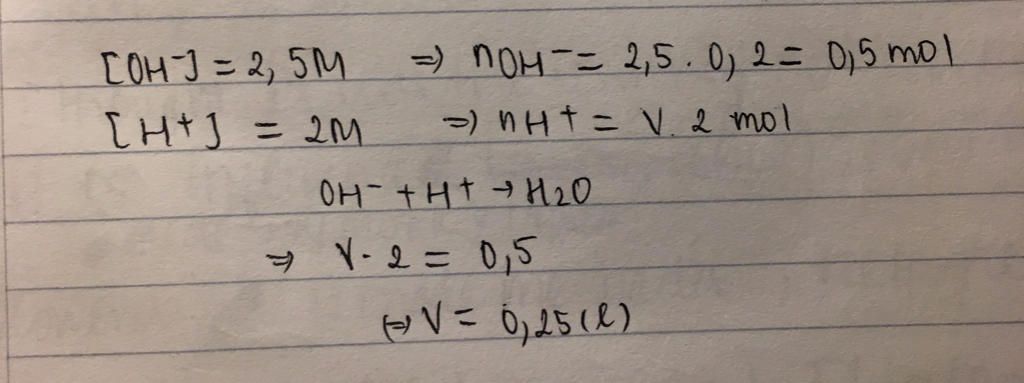 [OH-] = 2,5M => nOH- = 2,5 . 0,2 = 0,5 mol
[H+] = 2M => nH+ = V. 2 mol
OH- + H+ → H2O
=> V. 2 = 0,5
<=> V = 0,25 (l)